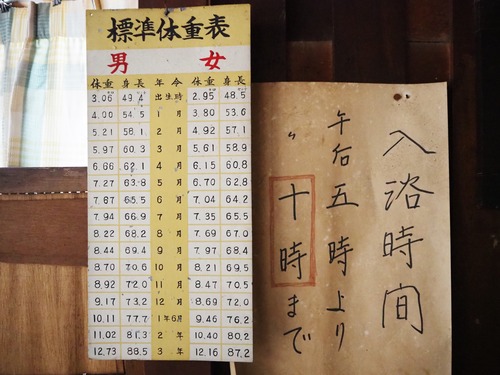 標準体重表
男 女
体重 身長 年令 体重 身長
3.06 49.4 出生時 2.95 48.5
4.00 54.5 1月 3.80 53.6
5.21 58.1 2月 4.92 57.1
5.97 60.3 3月 5.61 58.9
6.66 62.1 4月 6.15 60.8
7.27 63.8 5月 6.70 62.8
7.67 65.5 6月 7.04 64.2
7.94 66.9 7月 7.35 65.5
8.22 68.2 8月 7.69 67.0
8.44 69.4 9月 7.97 68.4
8.70 70.6 10月 8.21 69.5
8.92 72.0 11月 8.47 70.5
9.17 73.2 12月 8.69 72.0
10.11 77.7 1年6月 9.46 76.2
11.02 81.3 2年 10.40 80.2
12.73 88.5 3年 12.16 87.2
入浴時間
午后五時より
〃十時まで